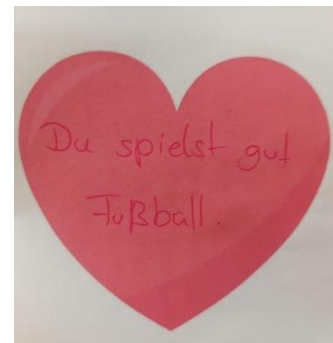 Du spielst gut
Fußball.